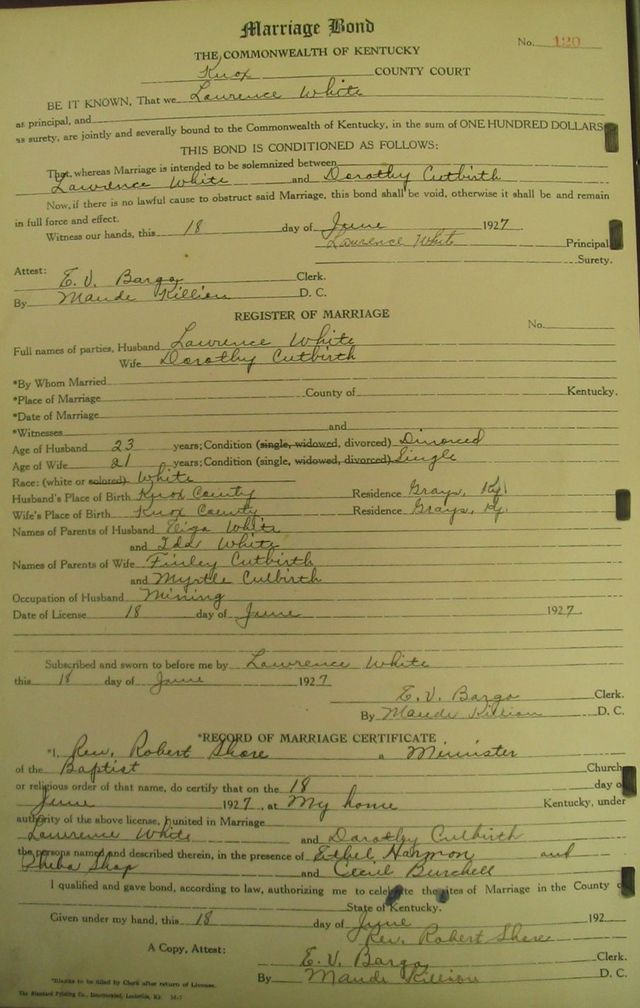 Marriage Bond
No. 120
THE COMMONWEALTH OF KENTUCKY
Knox COUNTY COURT
BE IT KNOWN, That we Lawrence White
as principal, and
as surety, are jointly and severally bound to the Commonwealth of Kentucky, in the sum of ONE HUNDRED DOLLARS
THIS BOND IS CONDITIONED AS FOLLOWS:
That, whereas Marriage is intended to be solemnized between
Lawrence White and Dorothy Cutbirth
Now, if there is no lawful cause to obstruct said Marriage, this bond shall be void, otherwise it shall be and remain
in full force and effect.
Witness our hands, this 18 day of June 1927
Lawrence White Principal
Surety.
Attest:
E. V. Bargo Clerk.
By Maude Killion D. C.
REGISTER OF MARRIAGE
No.
Full names of parties, Husband Lawrence White
Wife Dorothy Cutbirth
*By Whom Married
*Place of Marriage County of Kentucky.
*Date of Marriage
*Witnesses and
Age of Husband 23 years; Condition (single, widowed, divorced) Divorced
Age of Wife 21 years; Condition (single, widowed, divorced) Single
Race: (white or colored) White
Husband's Place of Birth Knox County Residence Grays, Ky.
Wife's Place of Birth Knox County Residence Grays, Ky.
Names of Parents of Husband White
and Ida White
Names of Parents of Wife Finley Cutbirth
and Myrtle Culbirth
Occupation of Husband Mining
Date of License 18 day of June 1927.
Subscribed and sworn to before me by Lawrence White
this 18 day of June 1927
E. V. Bargo Clerk.
By Maude Killion D. C.
*RECORD OF MARRIAGE CERTIFICATE
*I, Rev. Robert Shore a Minister
of the Baptist Church
or religious order of that name, do certify that on the 18 day of
June 1927, at My home Kentucky, under
authority of the above license, I united in Marriage
Lawrence White and Dorothy Culbirth
the persons named and described therein, in the presence of Ethel Harmon and
and Cecil Burchell
I qualified and gave bond, according to law, authorizing me to celebrate the rites of Marriage in the County of
State of Kentucky.
Given under my hand, this 18 day of June 192
Rev. Robert Shore
A Copy, Attest:
E. V. Bargo
By Maude Killion
*Blanks to be filled by Clerk after return of License.
The Standard Printing Co., Incorporated, Louisville, Ky.